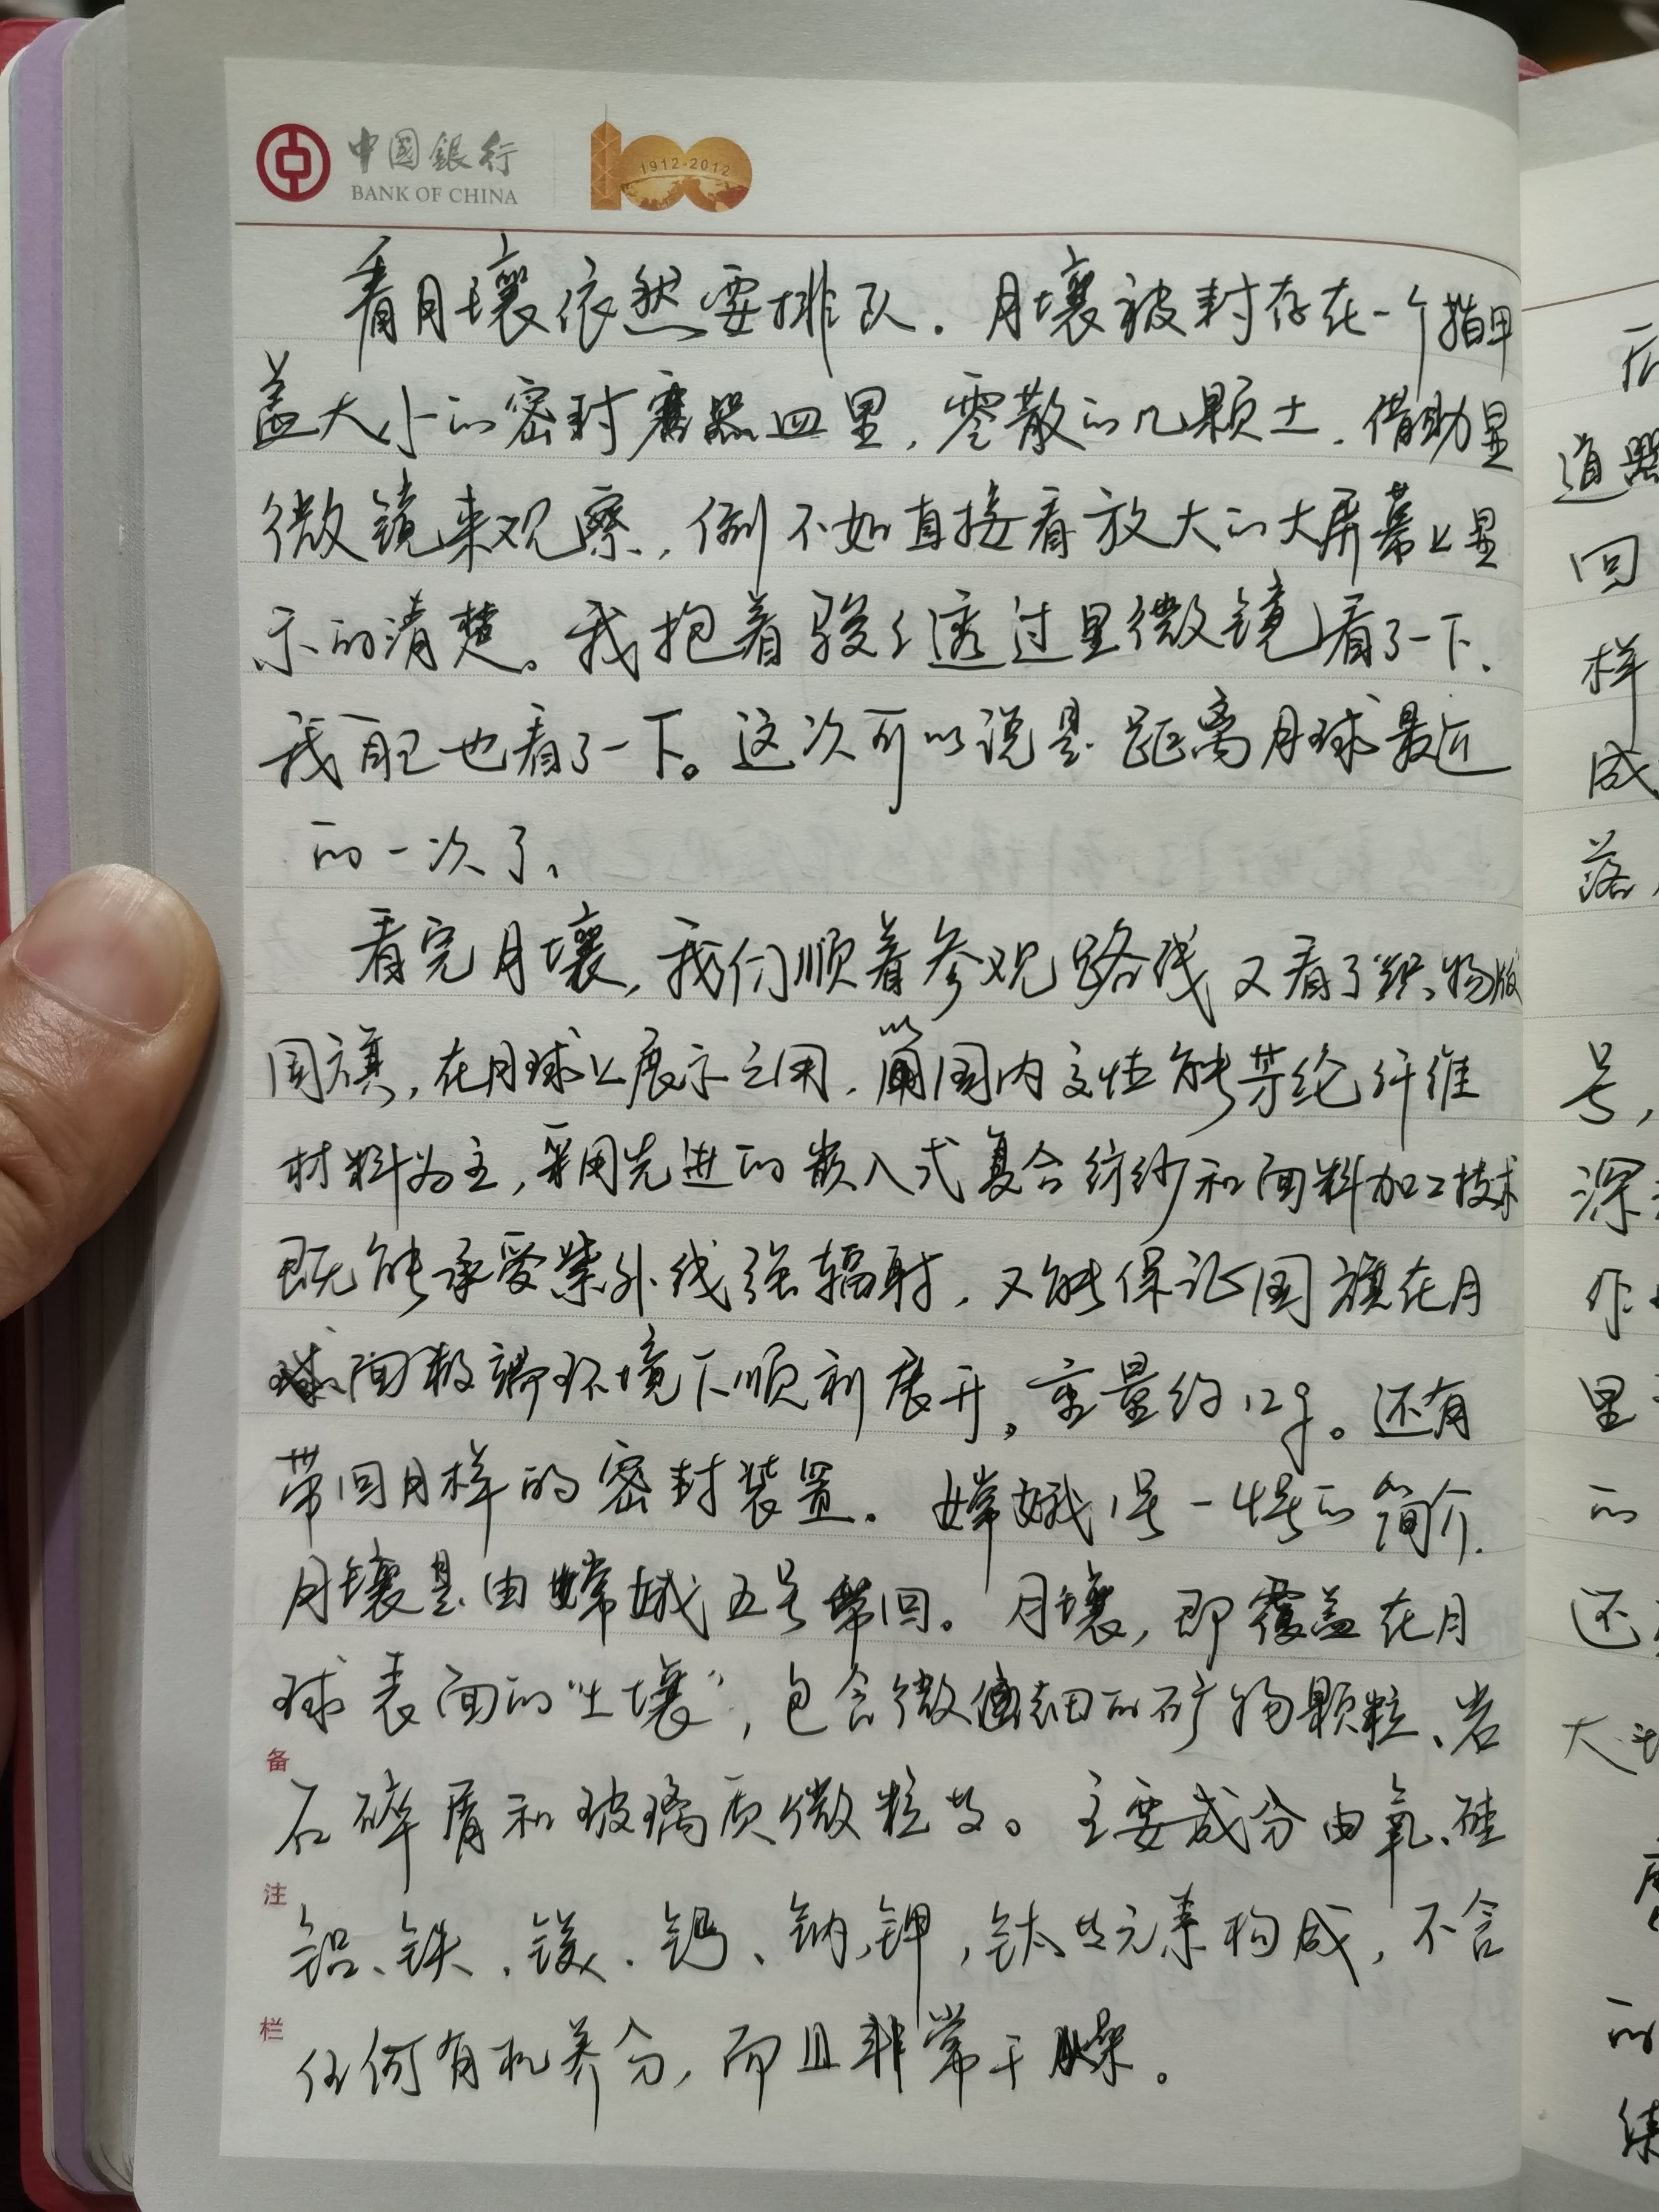 中国銀行
BANK OF CHINA
1912-2012
看月壤依然要排队. 月壤被封存在一个指甲
盖大小的密封器皿里, 零散的几颗土. 借助显
微镜来观察, 倒不如直接看放大的大屏幕上显
示的清楚。我抱着骏骏透过显微镜看了一下.
我自己也看了一下。这次可以说是距离月球最近
的一次了.
看完月壤, 我们顺着参观路线又看了织物版
国旗, 在月球上展示之用. 以国内高性能芳纶纤维
材料为主, 采用先进的嵌入式复合纺纱和面料加工技术
既能承受紫外线强辐射, 又能保证国旗在月
球面极端环境下顺利展开。重量约12g。还有
带回月样的密封装置。嫦娥1号-4号的简介.
月壤是由嫦娥五号带回。月壤, 即覆盖在月
球表面的“土壤”, 包含微细的矿物颗粒、岩
石碎屑和玻璃质微粒等。主要成分由氧、硅
铝、铁、镁、钙、钠、钾, 钛等元素构成, 不含
任何有机养分, 而且非常干燥。
备
注
栏
后
道器
回
样
成
落
号,
深
作
里
的
还
大
的